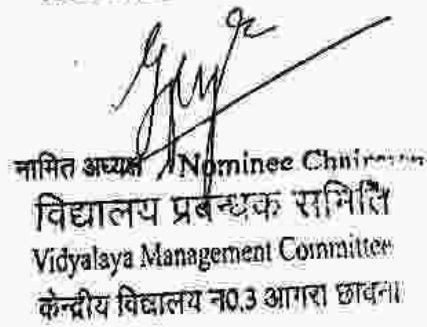 नामित अध्यक्ष / Nominee Chairman
विद्यालय प्रबन्धक समिति
Vidyalaya Management Committee
केन्द्रीय विद्यालय न0.3 आगरा छावनी